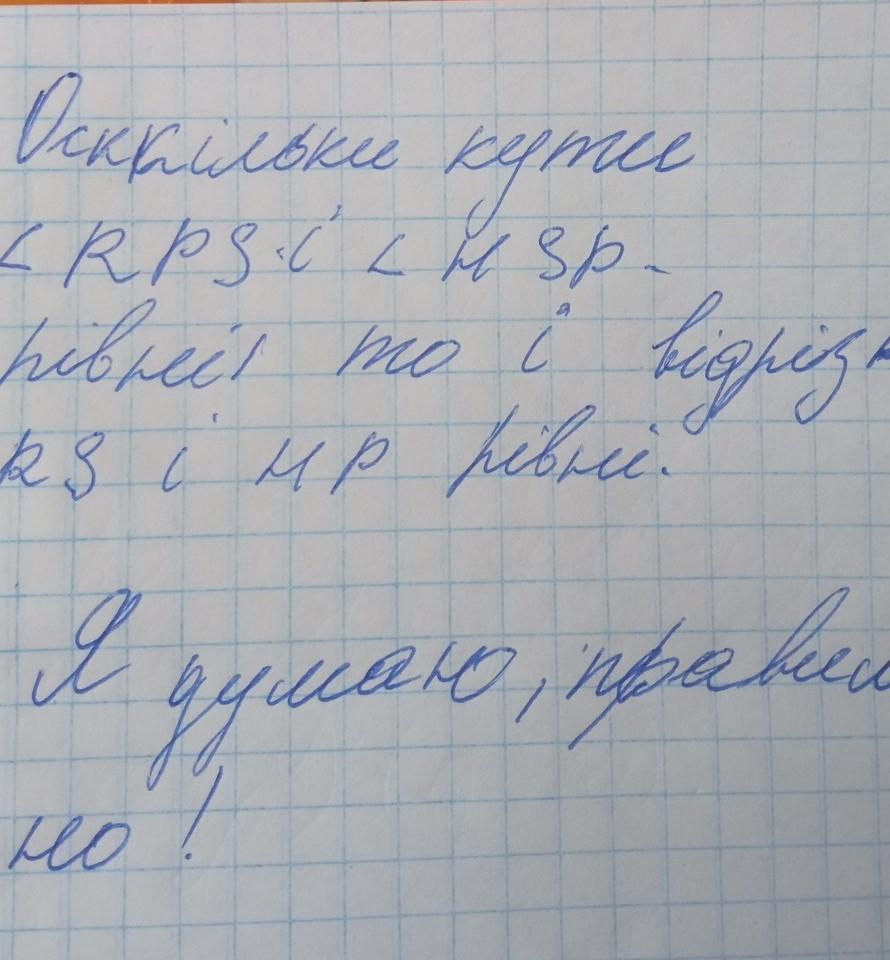 Осккільки кути
< R P S і < H S P.
рівнії то і відрізк
RS і H P рівні.
Я думаю, правиль
но!